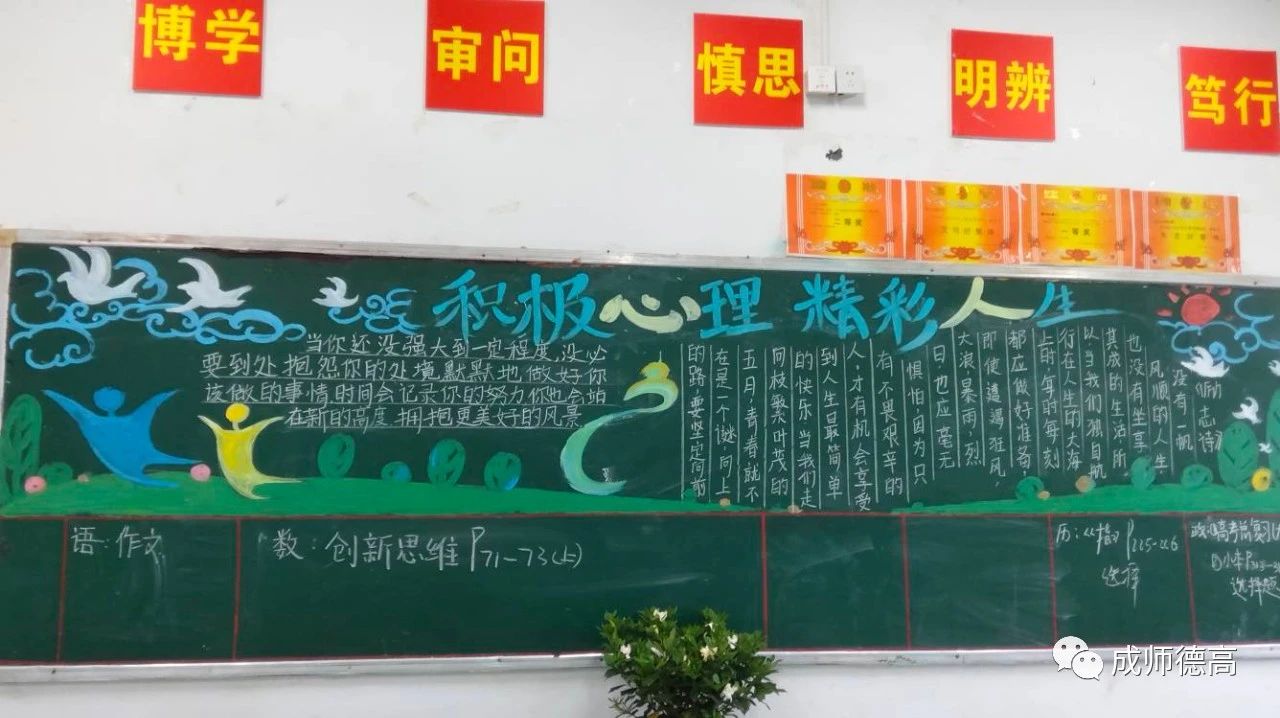 博学
审问
慎思
明辨
笃行
二等奖
一等奖
积极心理 精彩人生
当你还没强大到一定程度,没必
要到处抱怨你的处境默默地做好你
该做的事情时间会记录你的努力你也会站
在新的高度,拥抱更美好的风景
《励志诗》
没有一帆
风顺的人生
也没有坐享
其成的生活·所
以当我们独自航
行在人生的大海
上时·每时每刻
都应做好准备
即使遭遇狂风、
大浪暴雨·烈
日·也应毫无
惧怕·因为只
有不畏艰辛的
人·才有机会享受
到人生最简单
的快乐·当我们走
向枝繁叶茂的
五月·青春就不
在是一个谜·向上
的路·要坚定向前
语:作文
数:创新思维 P71-73(上)
历: P225-226
选择
政:
选择题
成师德高